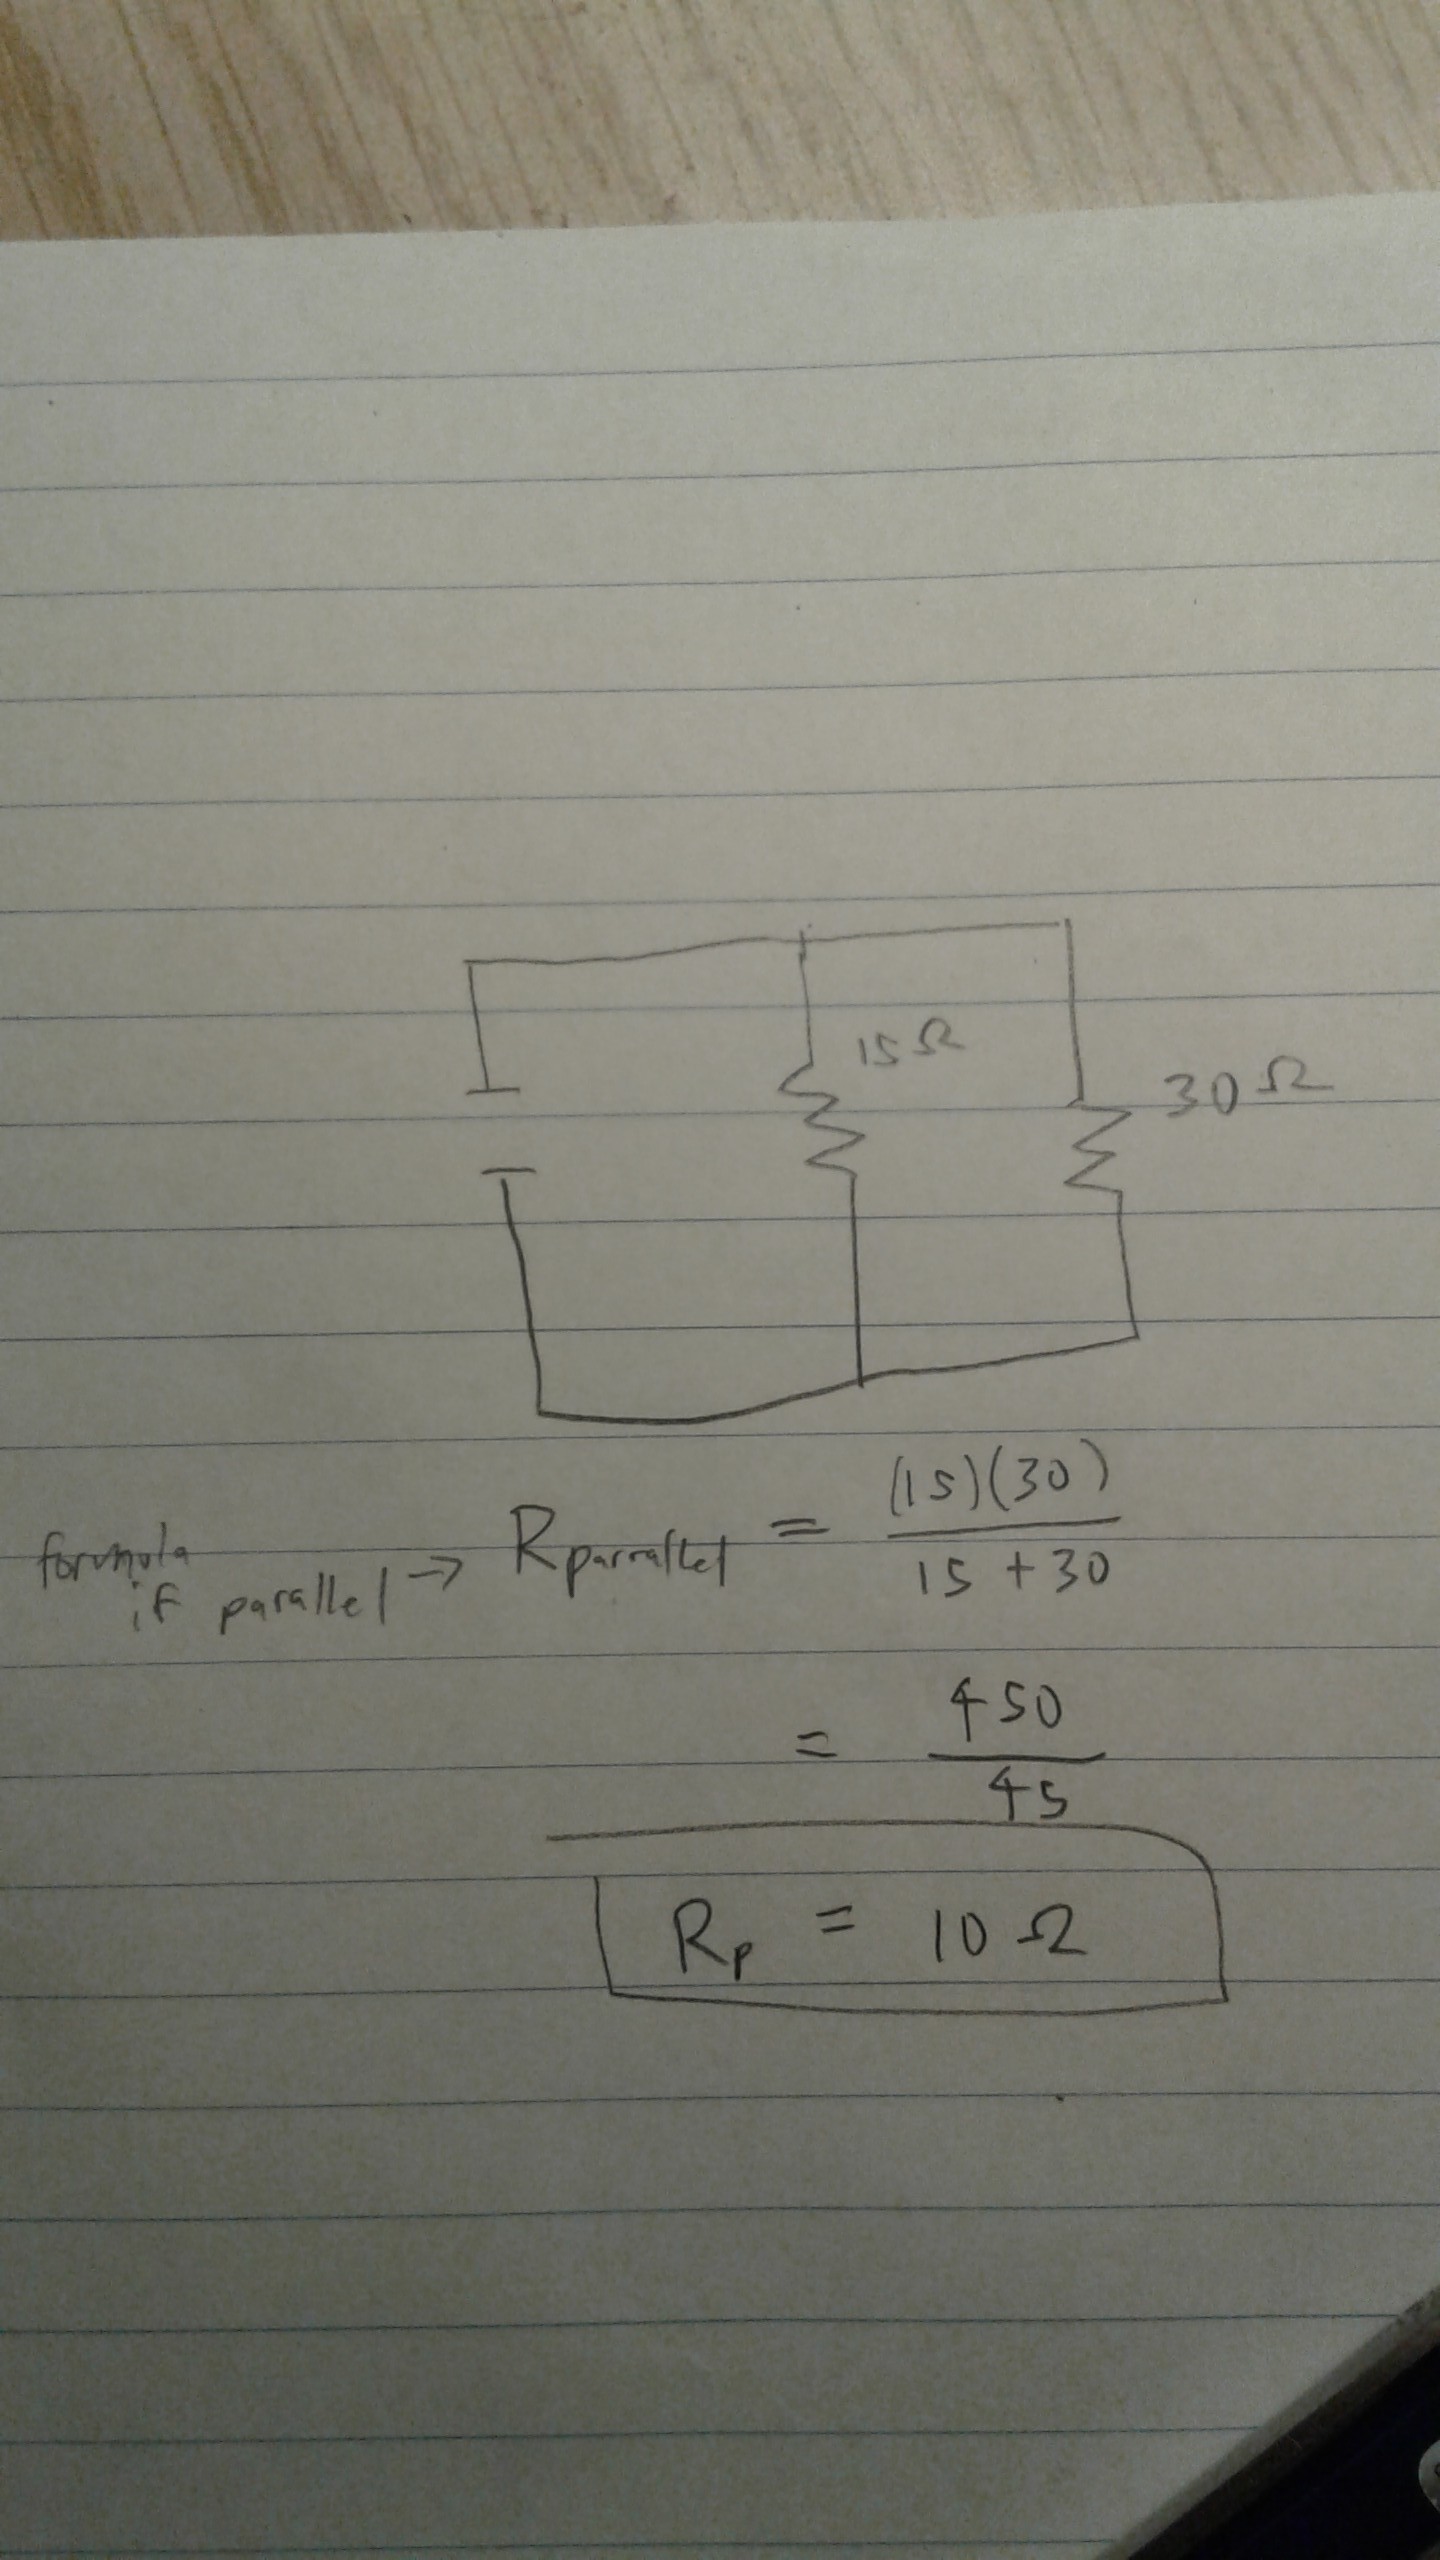 15 Ω
30 Ω
formula
if parallel → R parrallel = (15)(30) / 15 + 30
= 450 / 45
Rp = 10 Ω